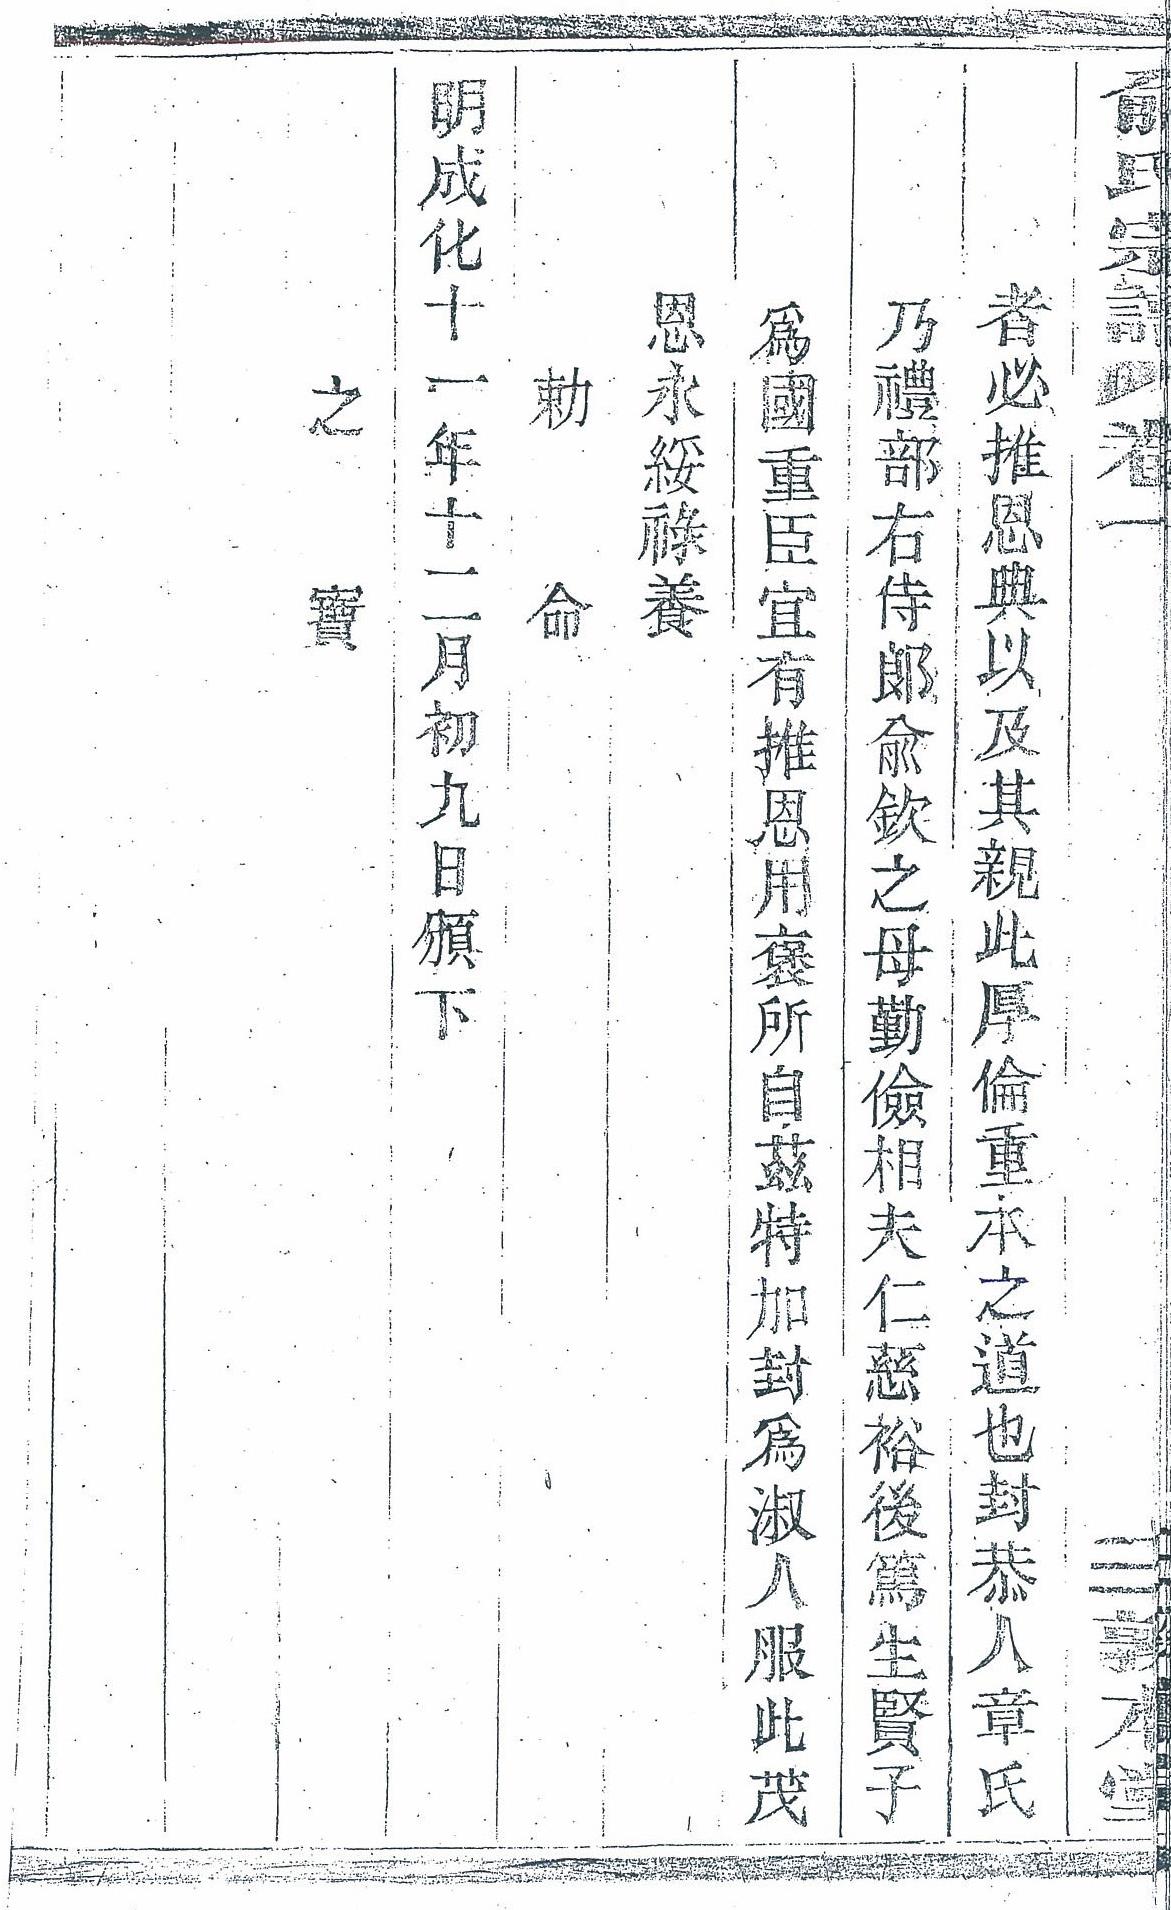 俞氏宗譜 卷一 三 敦本堂
者必推恩典以及其親此厚倫重本之道也封恭人章氏
乃禮部右侍郞俞欽之母勤儉相夫仁慈裕後篤生賢子
爲國重臣宜有推恩用褒所自茲特加封爲淑人服此茂
恩永綏祿養
勅命
明成化十一年十二月初九日頒下
之寶